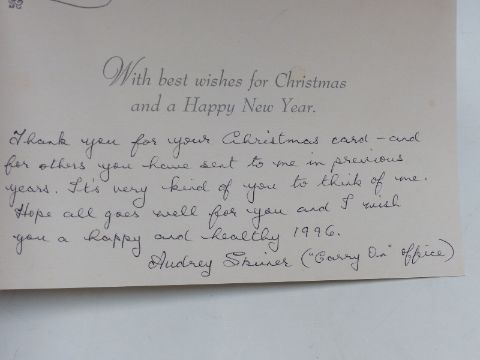 With best wishes for Christmas
and a Happy New Year.
Thank you for your Christmas card - and
for others you have sent to me in previous
years. It's very kind of you to think of me.
Hope all goes well for you and I wish
you a happy and healthy 1996.
Audrey Skinner ("Carry On" office)